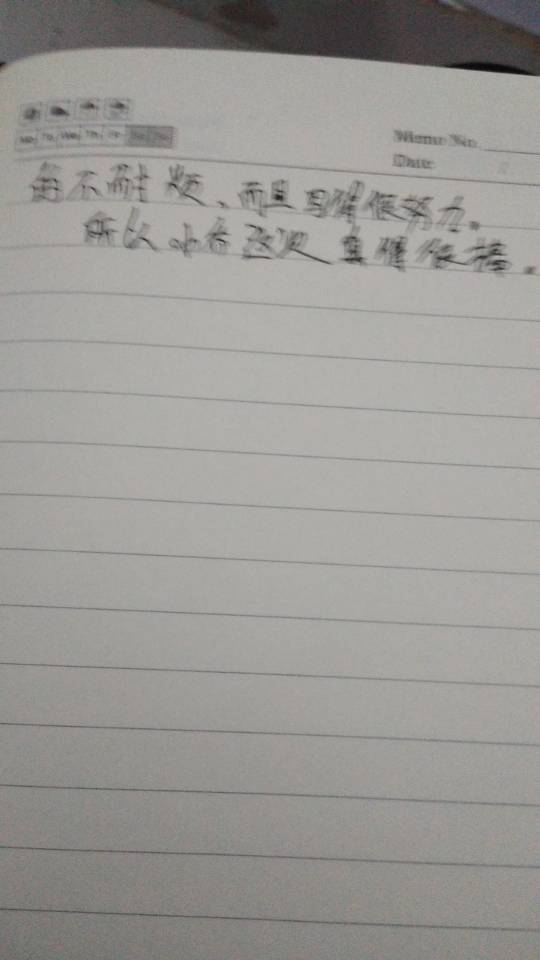 Mo Tu We Th Fr Sa Su
Memo No.
Date
的不耐烦、而且写得很努力。
所以 这次真得很棒。